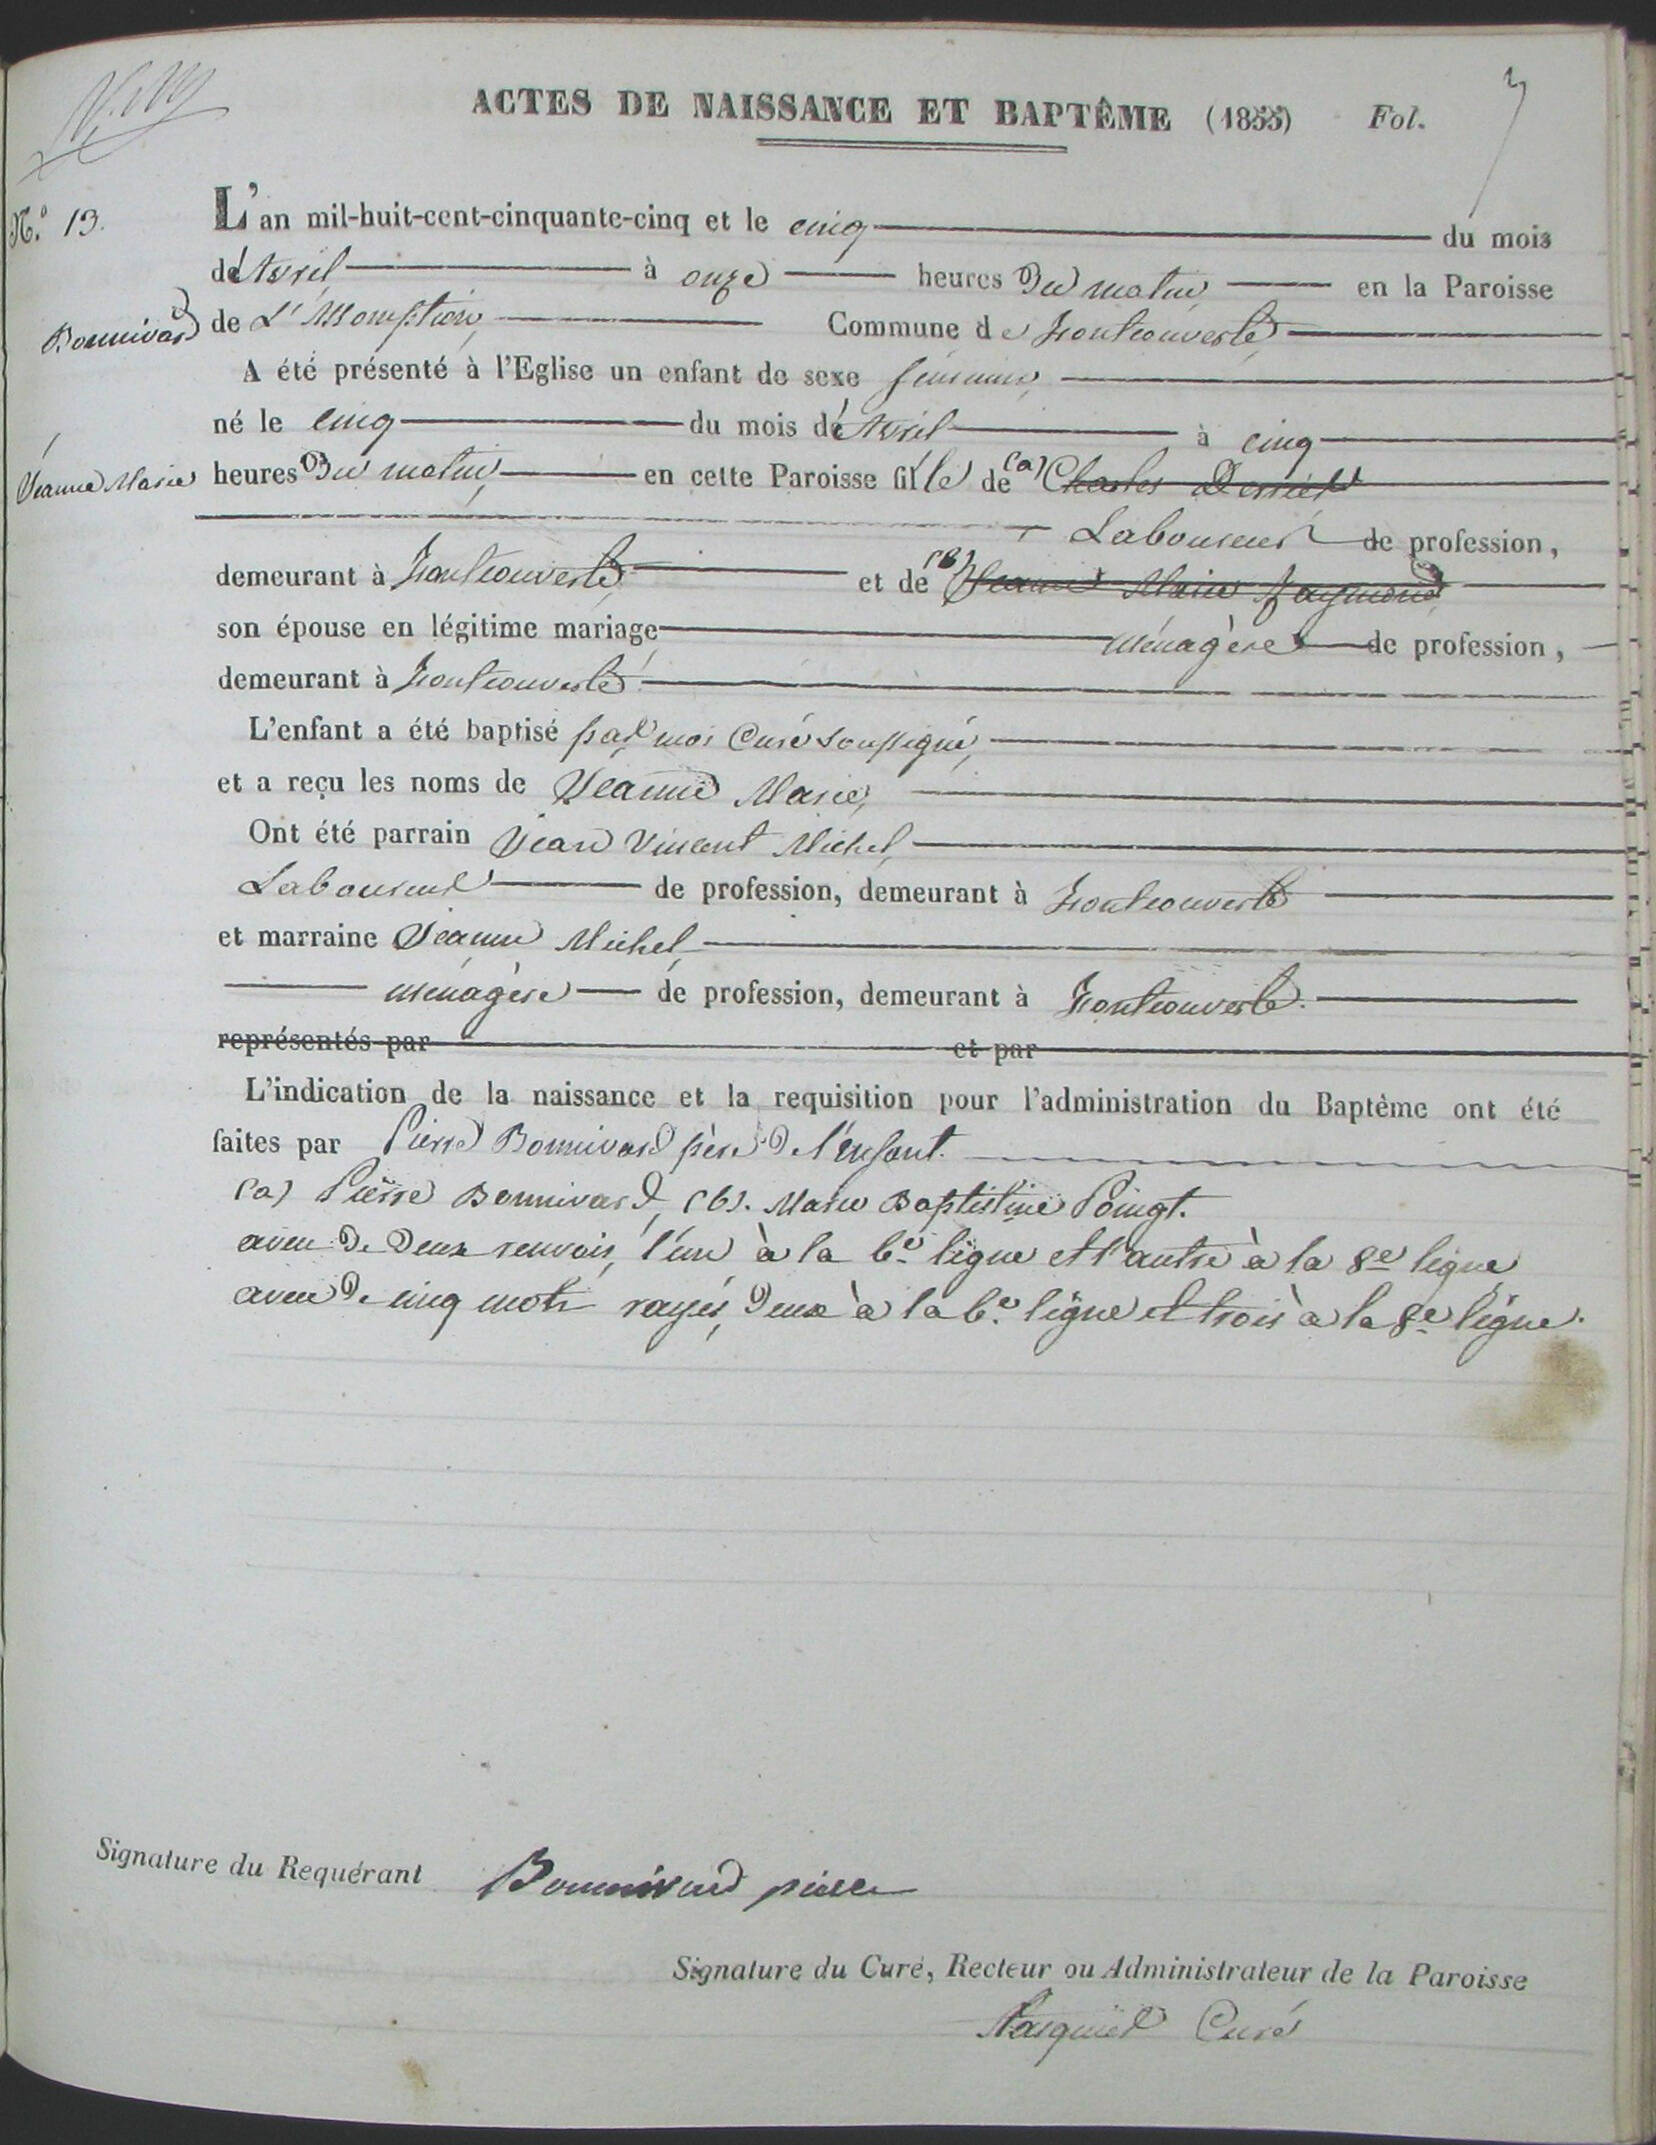 ACTES DE NAISSANCE ET BAPTÊME (1855) Fol. 7
N.º 13.
Bonnivard
Jeanne Marie
L'an mil-huit-cent-cinquante-cinq et le cinq du mois
de Avril à onze heures Du matin en la Paroisse
de L'Assomption, Commune de Fontcouverte
A été présenté à l'Eglise un enfant de sexe féminin,
né le cinq du mois d'Avril à cinq
heures Du matin, en cette Paroisse fille de (a) Charles
Laboureur de profession,
demeurant à Fontcouverte et de (b) Jeanne Marie Raymond
son épouse en légitime mariage ménagère de profession,
demeurant à Fontcouverte
L'enfant a été baptisé par moi Curé soussigné,
et a reçu les noms de Jeanne Marie,
Ont été parrain Jean Vincent Michel,
Laboureur de profession, demeurant à Fontcouverte
et marraine Jeanne Michel,
ménagère de profession, demeurant à Fontcouverte.
représentés par et par
L'indication de la naissance et la requisition pour l'administration du Baptême ont été
faites par Pierre Bonnivard père De l'enfant.
(a) Pierre Bonnivard, (b). Marie Baptistine Poingt.
aveu De Deux renvois, l'un à la 6e ligne et l'autre à la 8e ligne
aveu De cinq mots rayés, Deux à la 6e ligne et trois à la 8e ligne.
Signature du Requérant Bonnivard pierre
Signature du Curé, Recteur ou Administrateur de la Paroisse
Curé